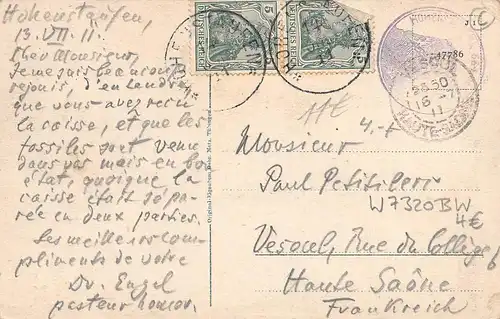 Hohenstaufen,
13.VII.11.
Cher Monsieur,
Je me suis beaucoup
rejoui, d'entendre
que vous avez recu
la caisse, et que les
fossiles sont venu
dans pas mais en bon
état, quoique la
caisse était sépa-
rée en deux parties.
Les meilleurs com-
pliments de votre
Dr. Engel
pasteur honor.
DEUTSCHES REICH
5
DEUTSCHES REICH
HOHENSTAUFEN
47786
11€
4.-
Monsieur
Paul Petitclerc
W7320BW
4€
Vesoul, Rue du Collège 6
Haute Saône
Frankreich
HAUTE-SAONE